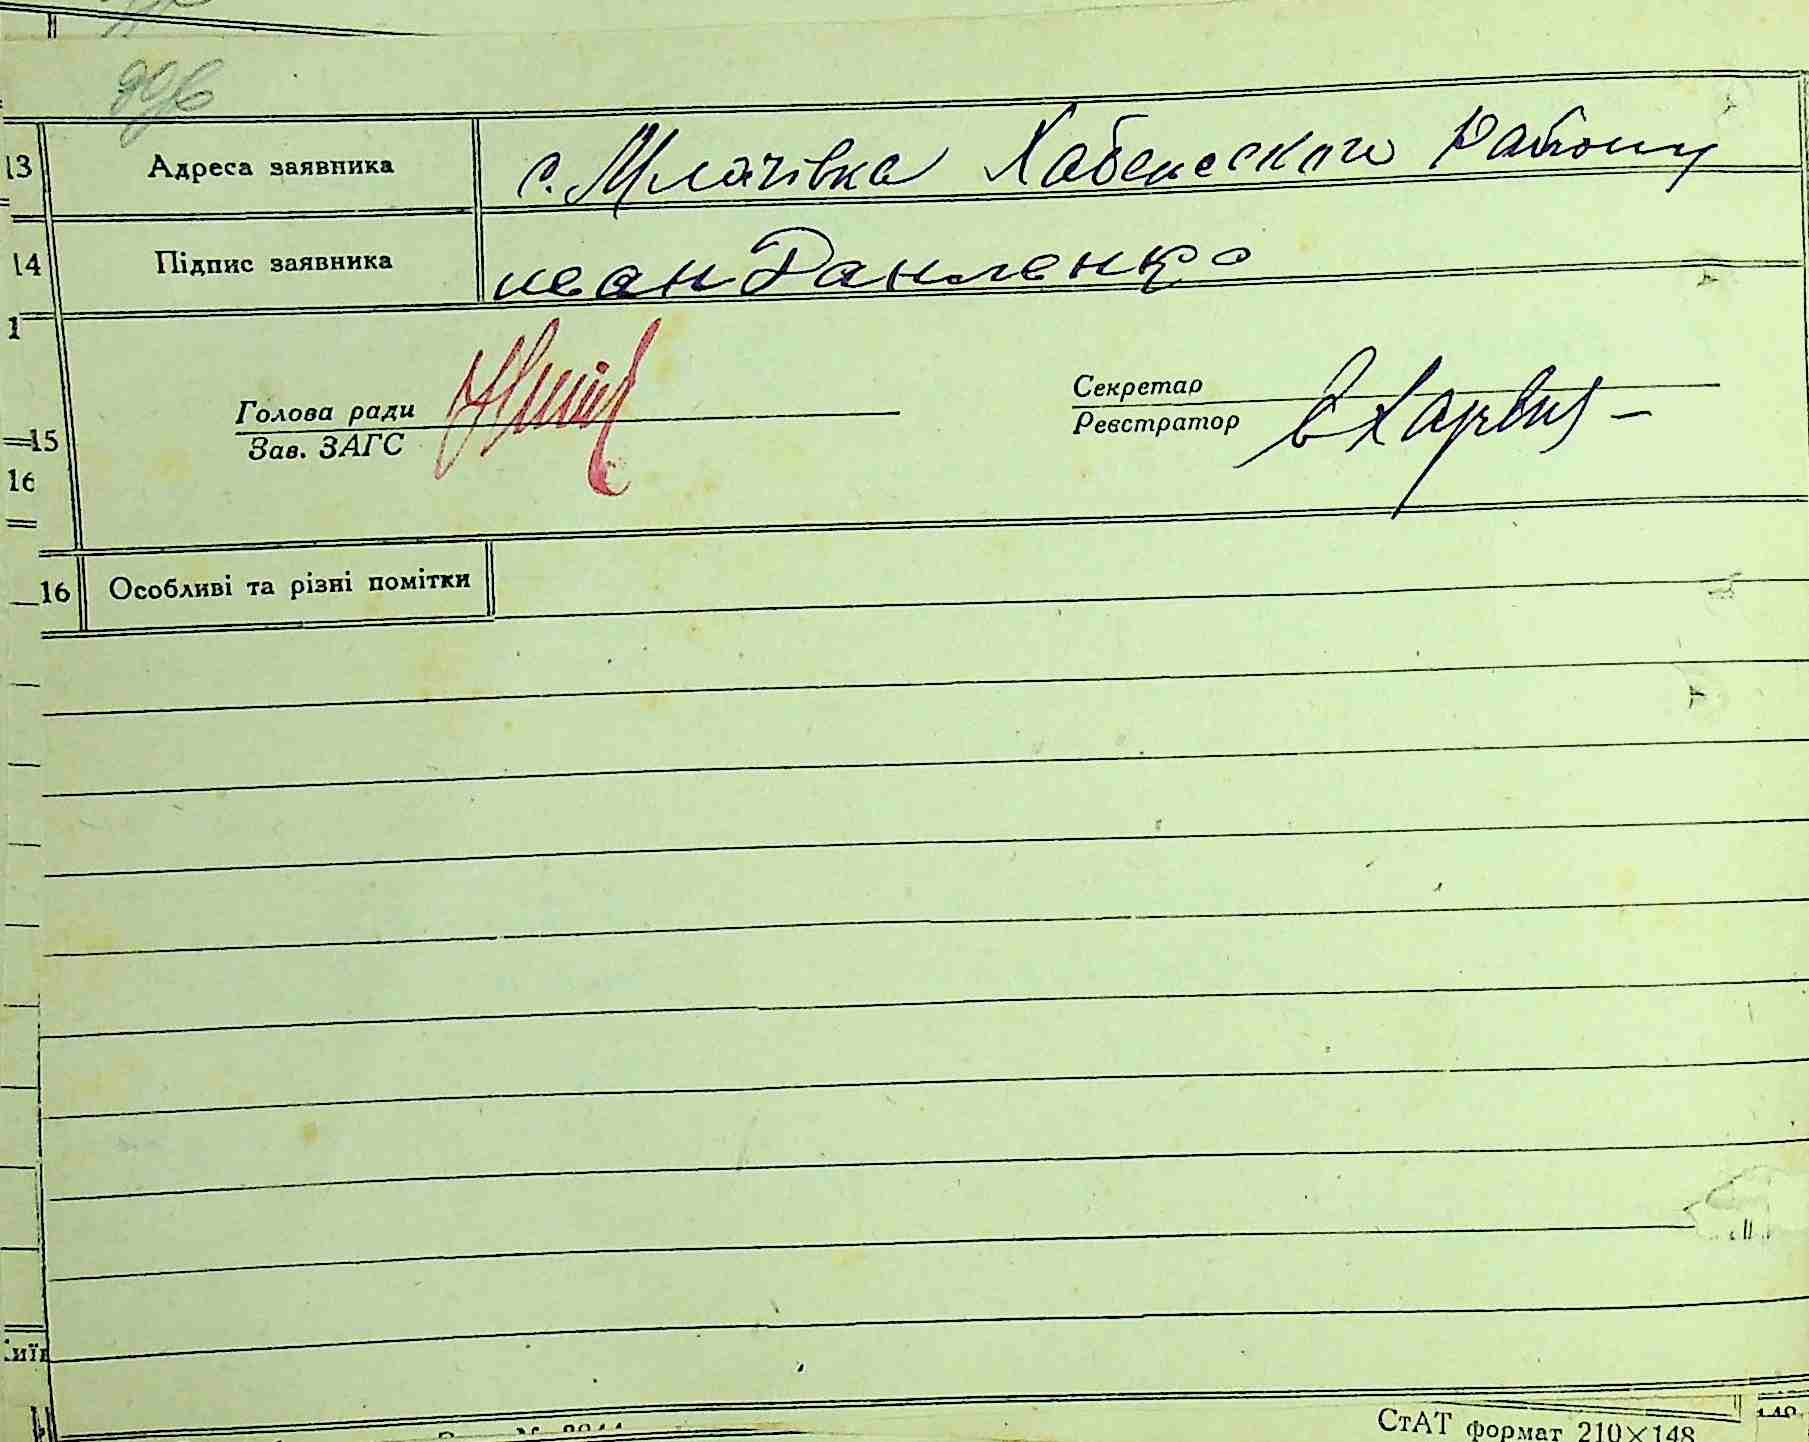 90в
13 Адреса заявника с. Млачівка Хабенсского Району
14 Підпис заявника иван Данленко
1
Голова ради
Зав. ЗАГС
Секретар
Реєстратор
15
16
16 Особливі та різні помітки
СтАТ формат 210×148